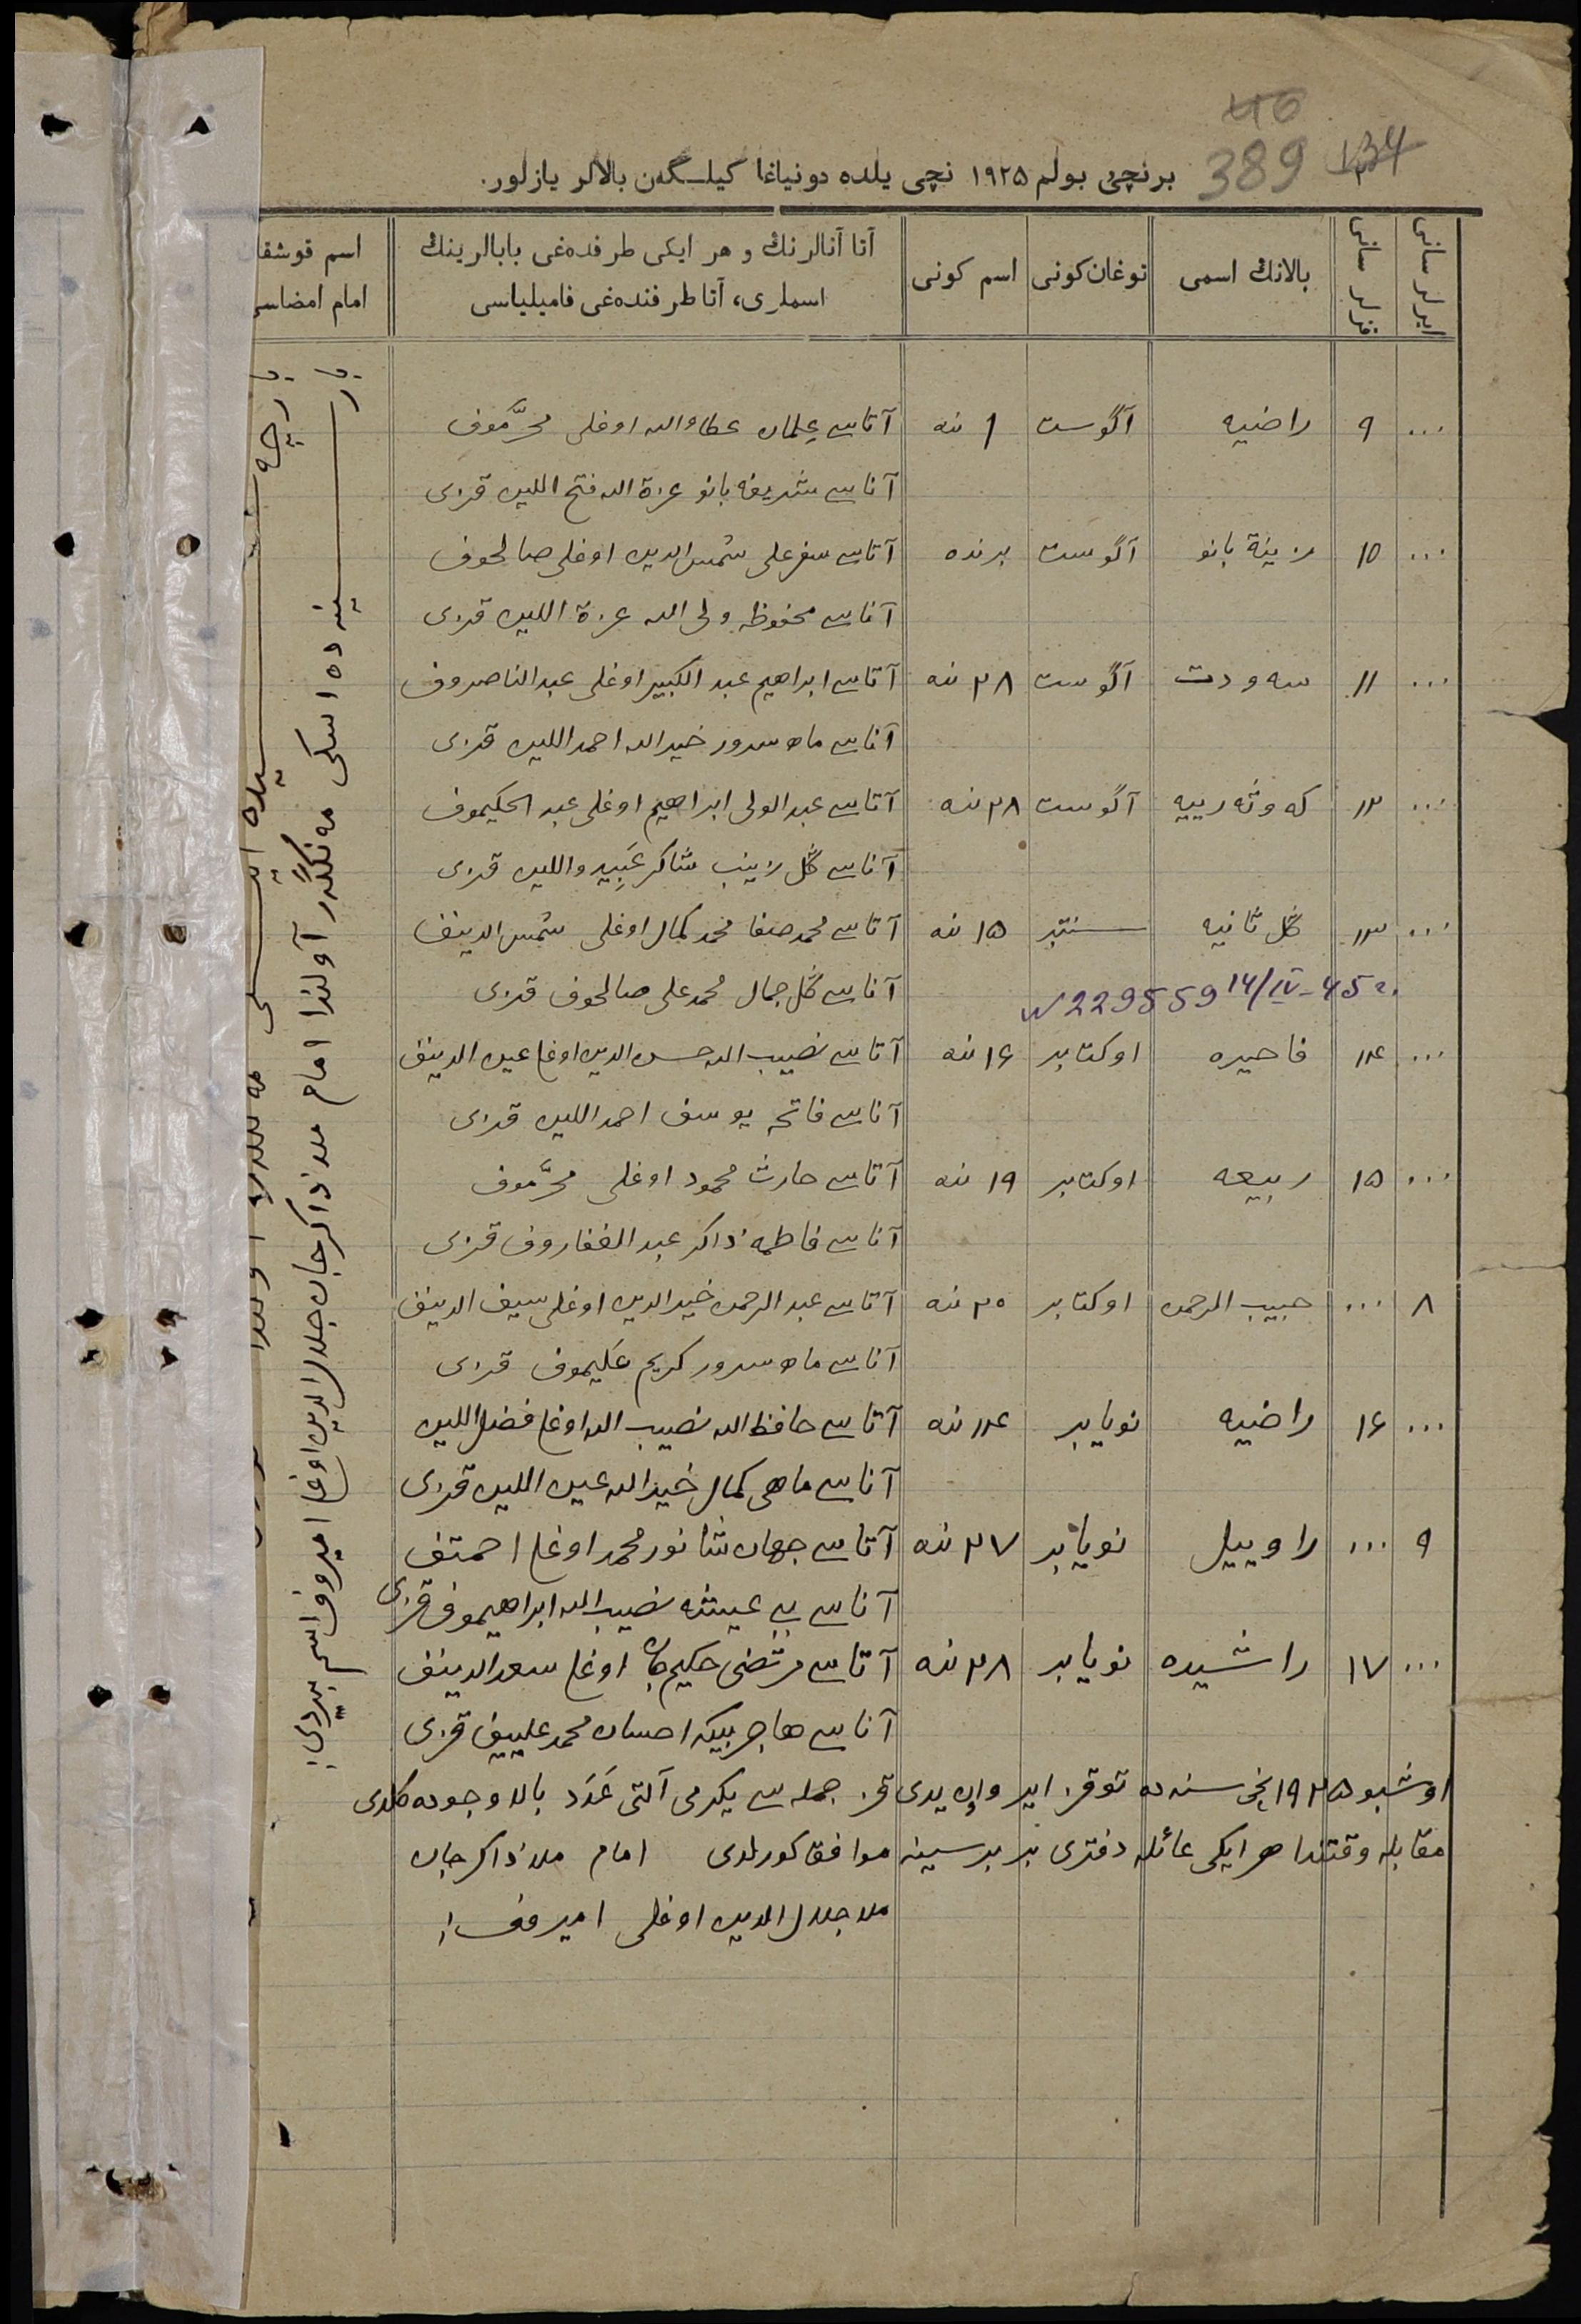 40
389 134
برنچی بولم ۱۹۲۵ نچی یلده دونیاغا کیلـگەن بالالر یازلور.
ایرلر سانی
قزلر سانی
بالانك اسمی
توغان کونی
اسم کونی
آتا آنالرنك و هر ایکی طرفدەغی بابالرینك
اسملری، آتا طرفندەغی فامیلیاسی
اسم قوشقا
امام امضاسی
... ۹ راضیه آگوست ۱ نده آتاسی علمان عطاءالله اوغلی محرَّموف
آناسی شریفه بانو عزة الله فتح اللین قزی
... ۱۰ زینة بانو آگوست برنده آتاسی سفرعلی شمس الدین اوغلی صالحوف
آناسی محفوظه ولی الله عزة اللین قزی
... ۱۱ سه ودت آگوست ۲۸ نده آتاسی ابراهیم عبد الکبیر اوغلی عبد الناصروف
آناسی ماه سرور خیرالله احمد اللین قزی
... ۱۲ که وثه رییه آگوست ۲۸ نده آتاسی عبد الولی ابراهیم اوغلی عبد الحکیموف
آناسی گل زینب شاکر عَبِید واللین قزی
... ۱۳ گل ثانیه سنتبر ۱۵ نده آتاسی محمد صفا محمد کمال اوغلی شمس الدینف
آناسی گل جمال محمد علی صالحوف قزی
N 229559 14/IV-45 г.
... ۱۴ فاحیره اوکتابر ۱۶ نده آتاسی نصیب الله حسن الدین اوغلی عین الدینف
آناسی فاتحه یوسف احمد اللین قزی
... ۱۵ ربیعه اوکتابر ۱۹ نده آتاسی حارث محمود اوغلی محرَّموف
آناسی فاطمه ذاکر عبد الغفاروف قزی
۸ ... حبیب الرحمن اوکتابر ۲۰ نده آتاسی عبد الرحمن خیر الدین اوغلی سیف الدینف
آناسی ماه سرور کریم عَلیموف قزی
... ۱۶ راضیه نویابر ۲۴ نده آتاسی حافظ الله نصیب الله اوغلی فضل اللین
آناسی ماهی کمال خیرالله عین اللین قزی
۹ ... راوییل نویابر ۲۷ نده آتاسی جهان شا نور محمد اوغلی احمتف
آناسی بی عیشه نصیب الله ابراهیموف قزی
... ۱۷ راشیده نویابر ۲۸ نده آتاسی مرتضی حکیم جان اوغلی سعد الدینف
آناسی هاجر بیکه احسان محمد علییف قزی
اوشبو ۱۹۲۵ نچی سنه ده توقز ایر واون یدی قز جمله سی یکرمی آلتی عَدَد بالا وجوده کلدی
مقابله وقتندا هر ایکی عائله دفتری بر برسینه موافق کورلدی امام ملا ذاکرجان
ملا جلال الدین اوغلی امیروف!
سینده اسکی مەنگگر آولندا امام ملا ذاکرجان جلال الدین اوغلی امیروف اسم بیردی!